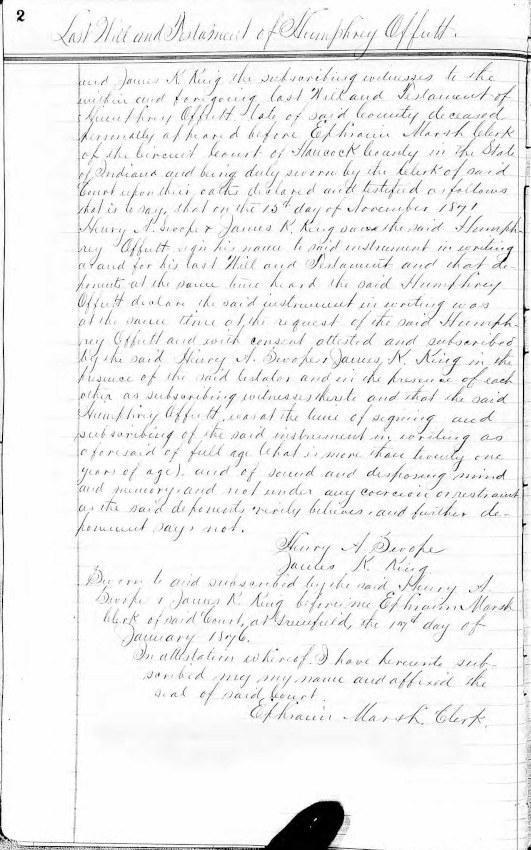 2
Last Will and Testament of Humphrey Offutt.
and James K King the subscribing witnesses to the
within and foregoing last Will and Testament of
Humphrey Offutt late of said County deceased
personally appeared before Ephraim Marsh Clerk
of the Circuit Court of Hancock County in the State
of Indiana and being duly sworn by the Clerk of said
Court upon their oaths declared and testified as follows
that is to say, that on the 13th day of November 1871
Henry A. Swope & James K. King saw the said Humph-
rey Offutt sign his name to said instrument in writing
as and for his last Will and Testament and that de-
ponents at the same time heard the said Humphrey
Offutt declare the said instrument in writing was
at the same time at the request of the said Humph-
rey Offutt and with consent attested and subscribed
by the said Henry A. Swope & James, K. King in the
presence of the said testator and in the presence of each
other as subscribing witnesses thereto and that the said
Humphrey Offutt, was at the time of signing and
subscribing of the said instrument in writing as
aforesaid of full age (that is more than twenty one
years of age), and of sound and disposing mind
and memory, and not under any coercion or restraint
as the said deponents verily believes, and further de-
ponement says not.
Henry A Swope
James K King
Sworn to and subscribed by the said Henry A.
Swope & James K King before me Ephraim Marsh
Clerk of said Court, at Greenfield, the 17th day of
January 1876.
In attestation whereof I have hereunto sub-
scribed my my name and affixed the
seal of said Court
Ephraim Marsh. Clerk.